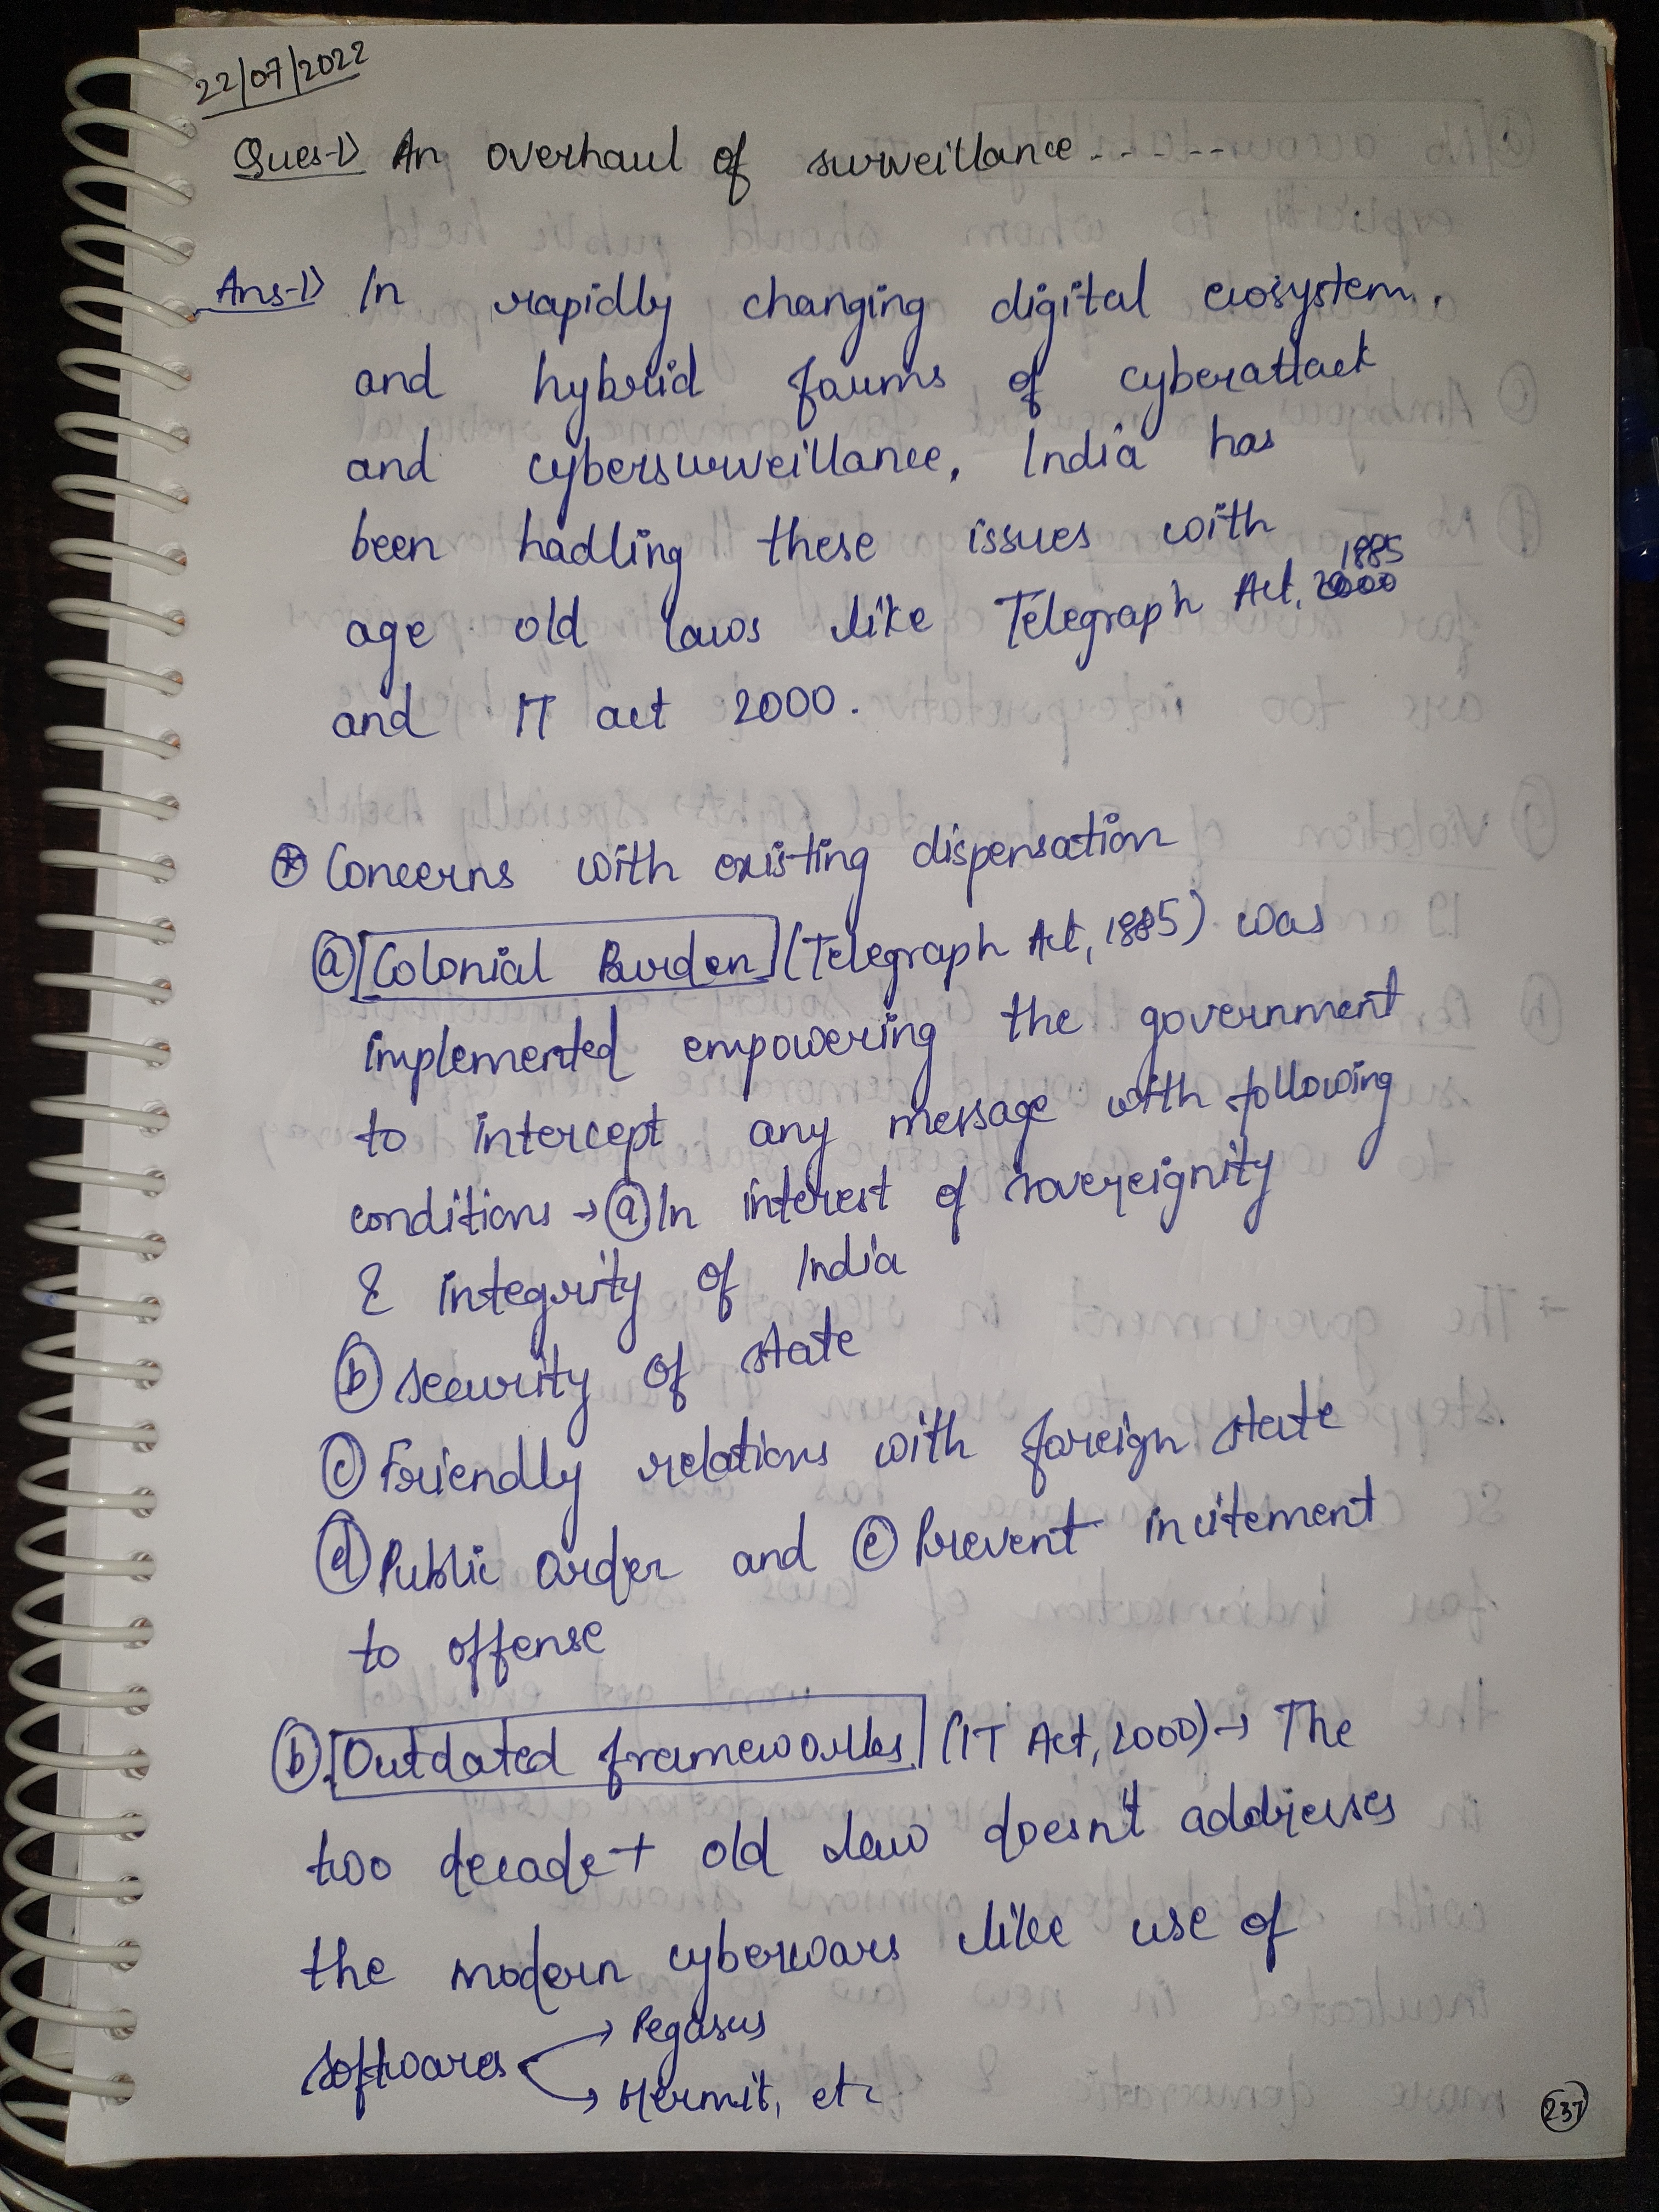 22/07/2022
Ques-1) An overhaul of surveillance - - - - - -
Ans-1) In rapidly changing digital ecosystem,
and hybrid forms of cyberattack
and cybersurveillance, India has
been hadling these issues with
1885
age old laws like Telegraph Act, 2000
and IT act 2000.
⊛ Concerns with existing dispensation
ⓐ [Colonial Burden] (Telegraph Act, 1885) was
implemented empowering the government
to intercept any message with following
conditions → ⓐ In interest of sovereignity
& integrity of India
ⓑ security of state
ⓒ Friendly relations with foreign state
ⓓ Public order and ⓔ Prevent incitement
to offense
ⓑ [Outdated frameworks] (IT Act, 2000) → The
two decade+ old law doesn't addresses
the modern cyberwars like use of
softwares → Pegasus
→ Hermit, etc
237